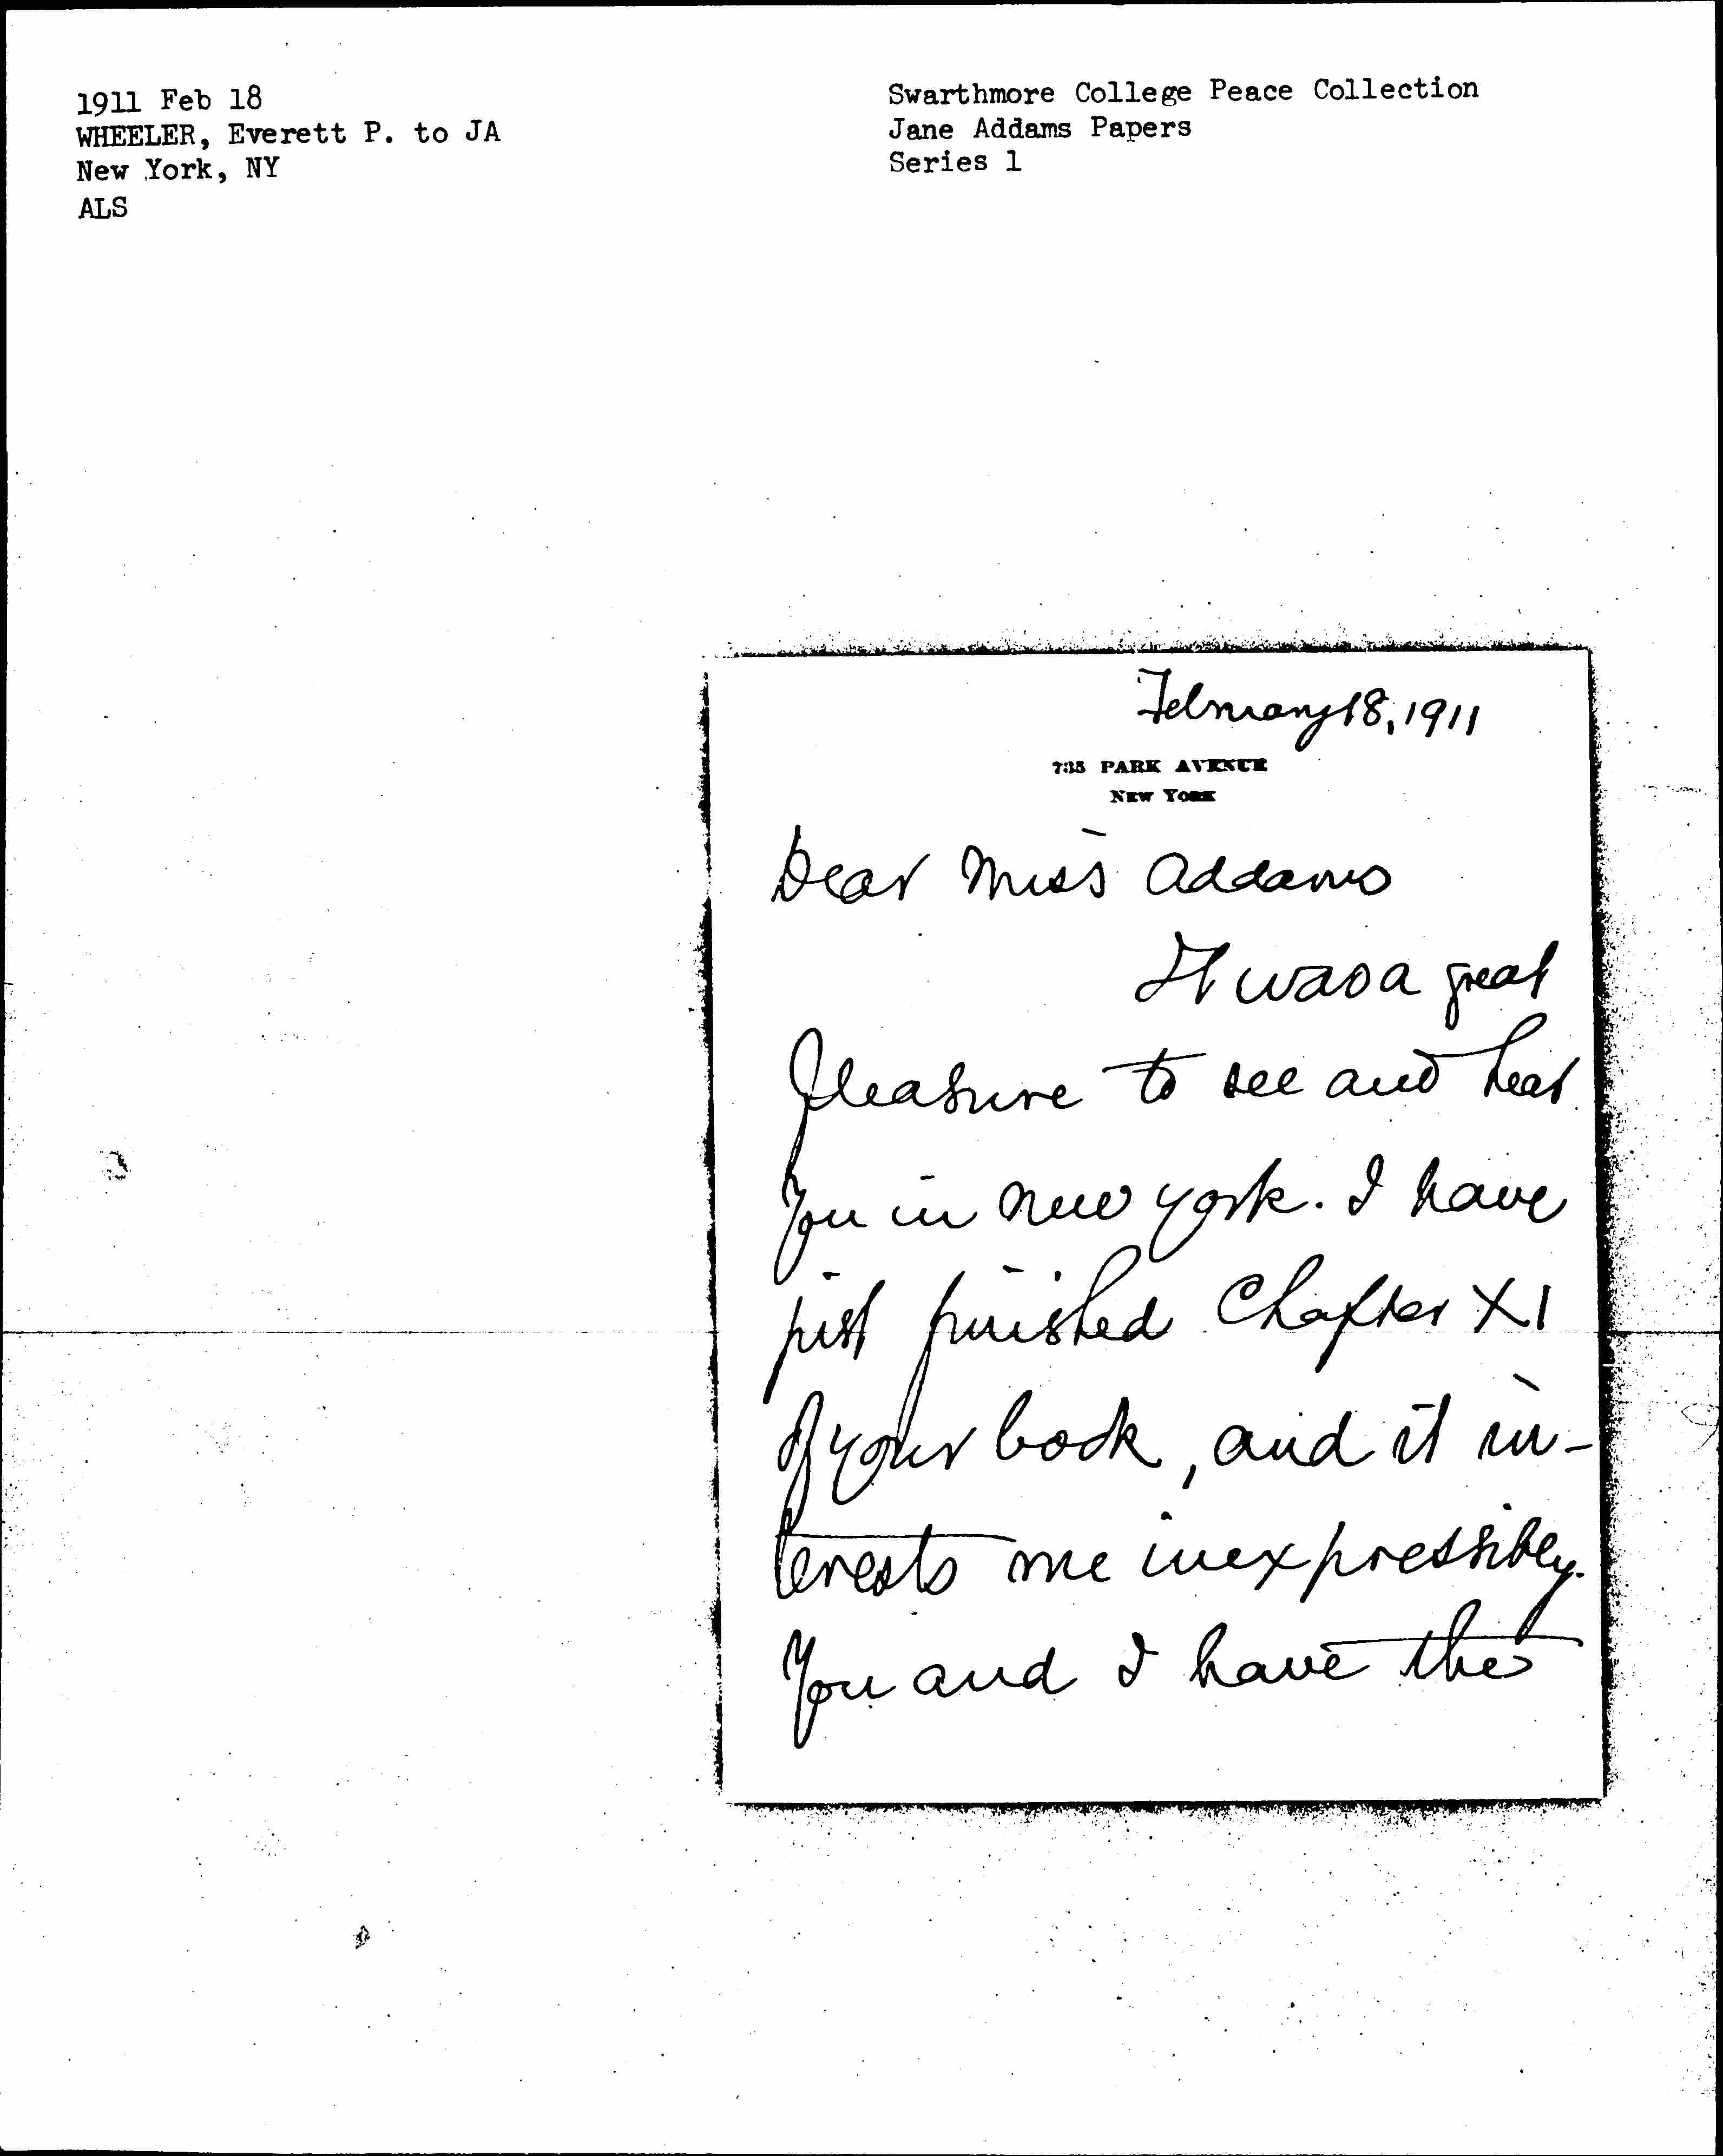 1911 Feb 18
WHEELER, Everett P. to JA
New York, NY
ALS
Swarthmore College Peace Collection
Jane Addams Papers
Series 1
February 18, 1911
735 PARK AVENUE
NEW YORK
Dear Miss Addams
It was a great
pleasure to see and hear
you in New York. I have
just finished Chapter XI
of your book, and it in-
terests me inexpressibly.
You and I have the